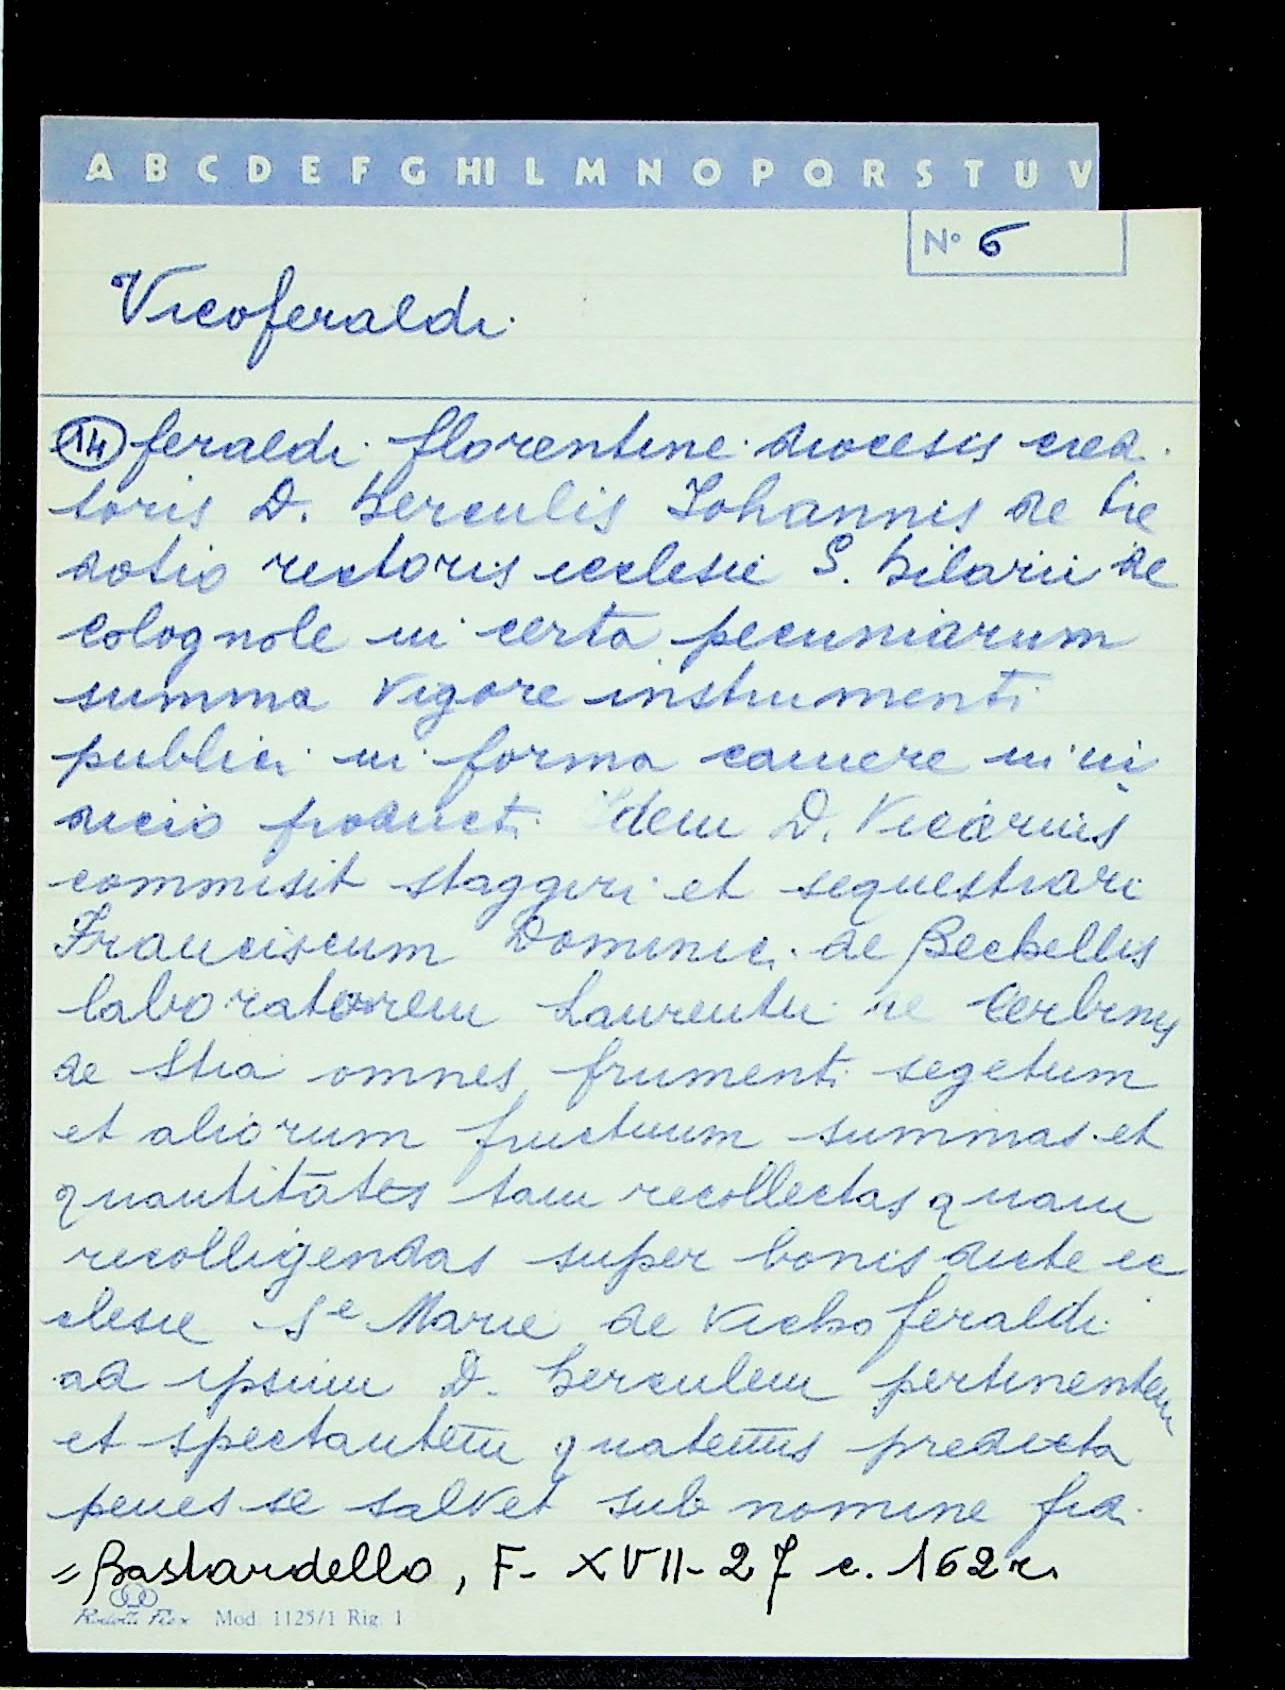 A B C D E F G HI L M N O P Q R S T U V
N° 6
Vicoferaldi
14 feraldi florentine diocesis cred
toris D. Herculis Johannis de Lie
dotio rectoris ecclesie S. Hilarii de
Colognole in certa pecuniarum
summa vigore instrumenti
publici in forma camere in iu
dicio producti Idem D. Vicarius
commisit staggiri et sequestrari
Franciscum Dominici de Bechellis
laboratorem Laurentii de Cerbinis
de Stia omnes frumenti segetum
et aliorum fructuum summas et
quantitates tam recollectas quam
recolligendas super bonis dicte ec
clesie Se Marie de Vicho feraldi
ad ipsum D. Herculem pertinentem
et spectantem quatenus predicta
penes se salvet sub nomine fid
= Bastardello, F- XVII-27 c. 162 r.
Mod. 1125/1 Rig. 1